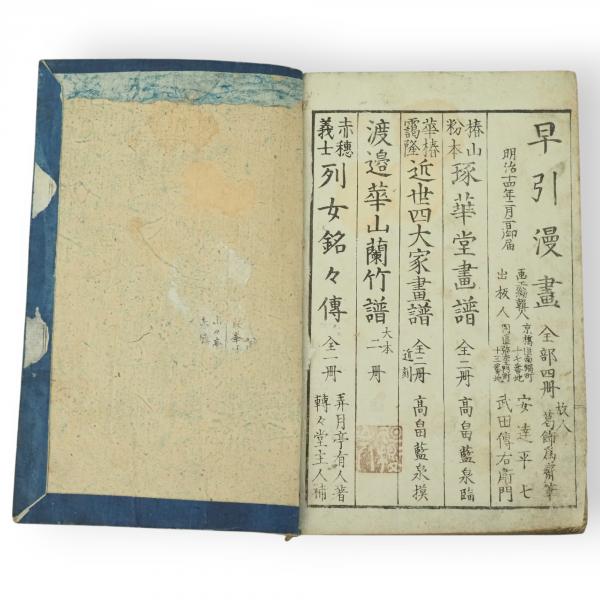 早引漫畫 全部四冊 故人 葛飾為齋筆
明治十四年二月三日御届
画工編輯人 京橋區南鍋町十七番地 安達平七
出板人 同區弥左ヱ門町十三番地 武田傳右衛門
椿山粉本 琢華堂畫譜 全二冊 高畠藍泉臨
華椿靄隆 近世四大家畫譜 全二冊 近刻 高畠藍泉摸
渡邉華山蘭竹譜 大本二冊
赤穂義士 列女銘々傳 全一冊 弄月亭有人著 轉々堂主人補